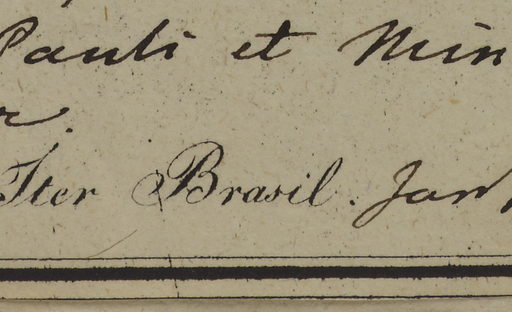 Pauli et Min
r.
Iter Brasil. Jan